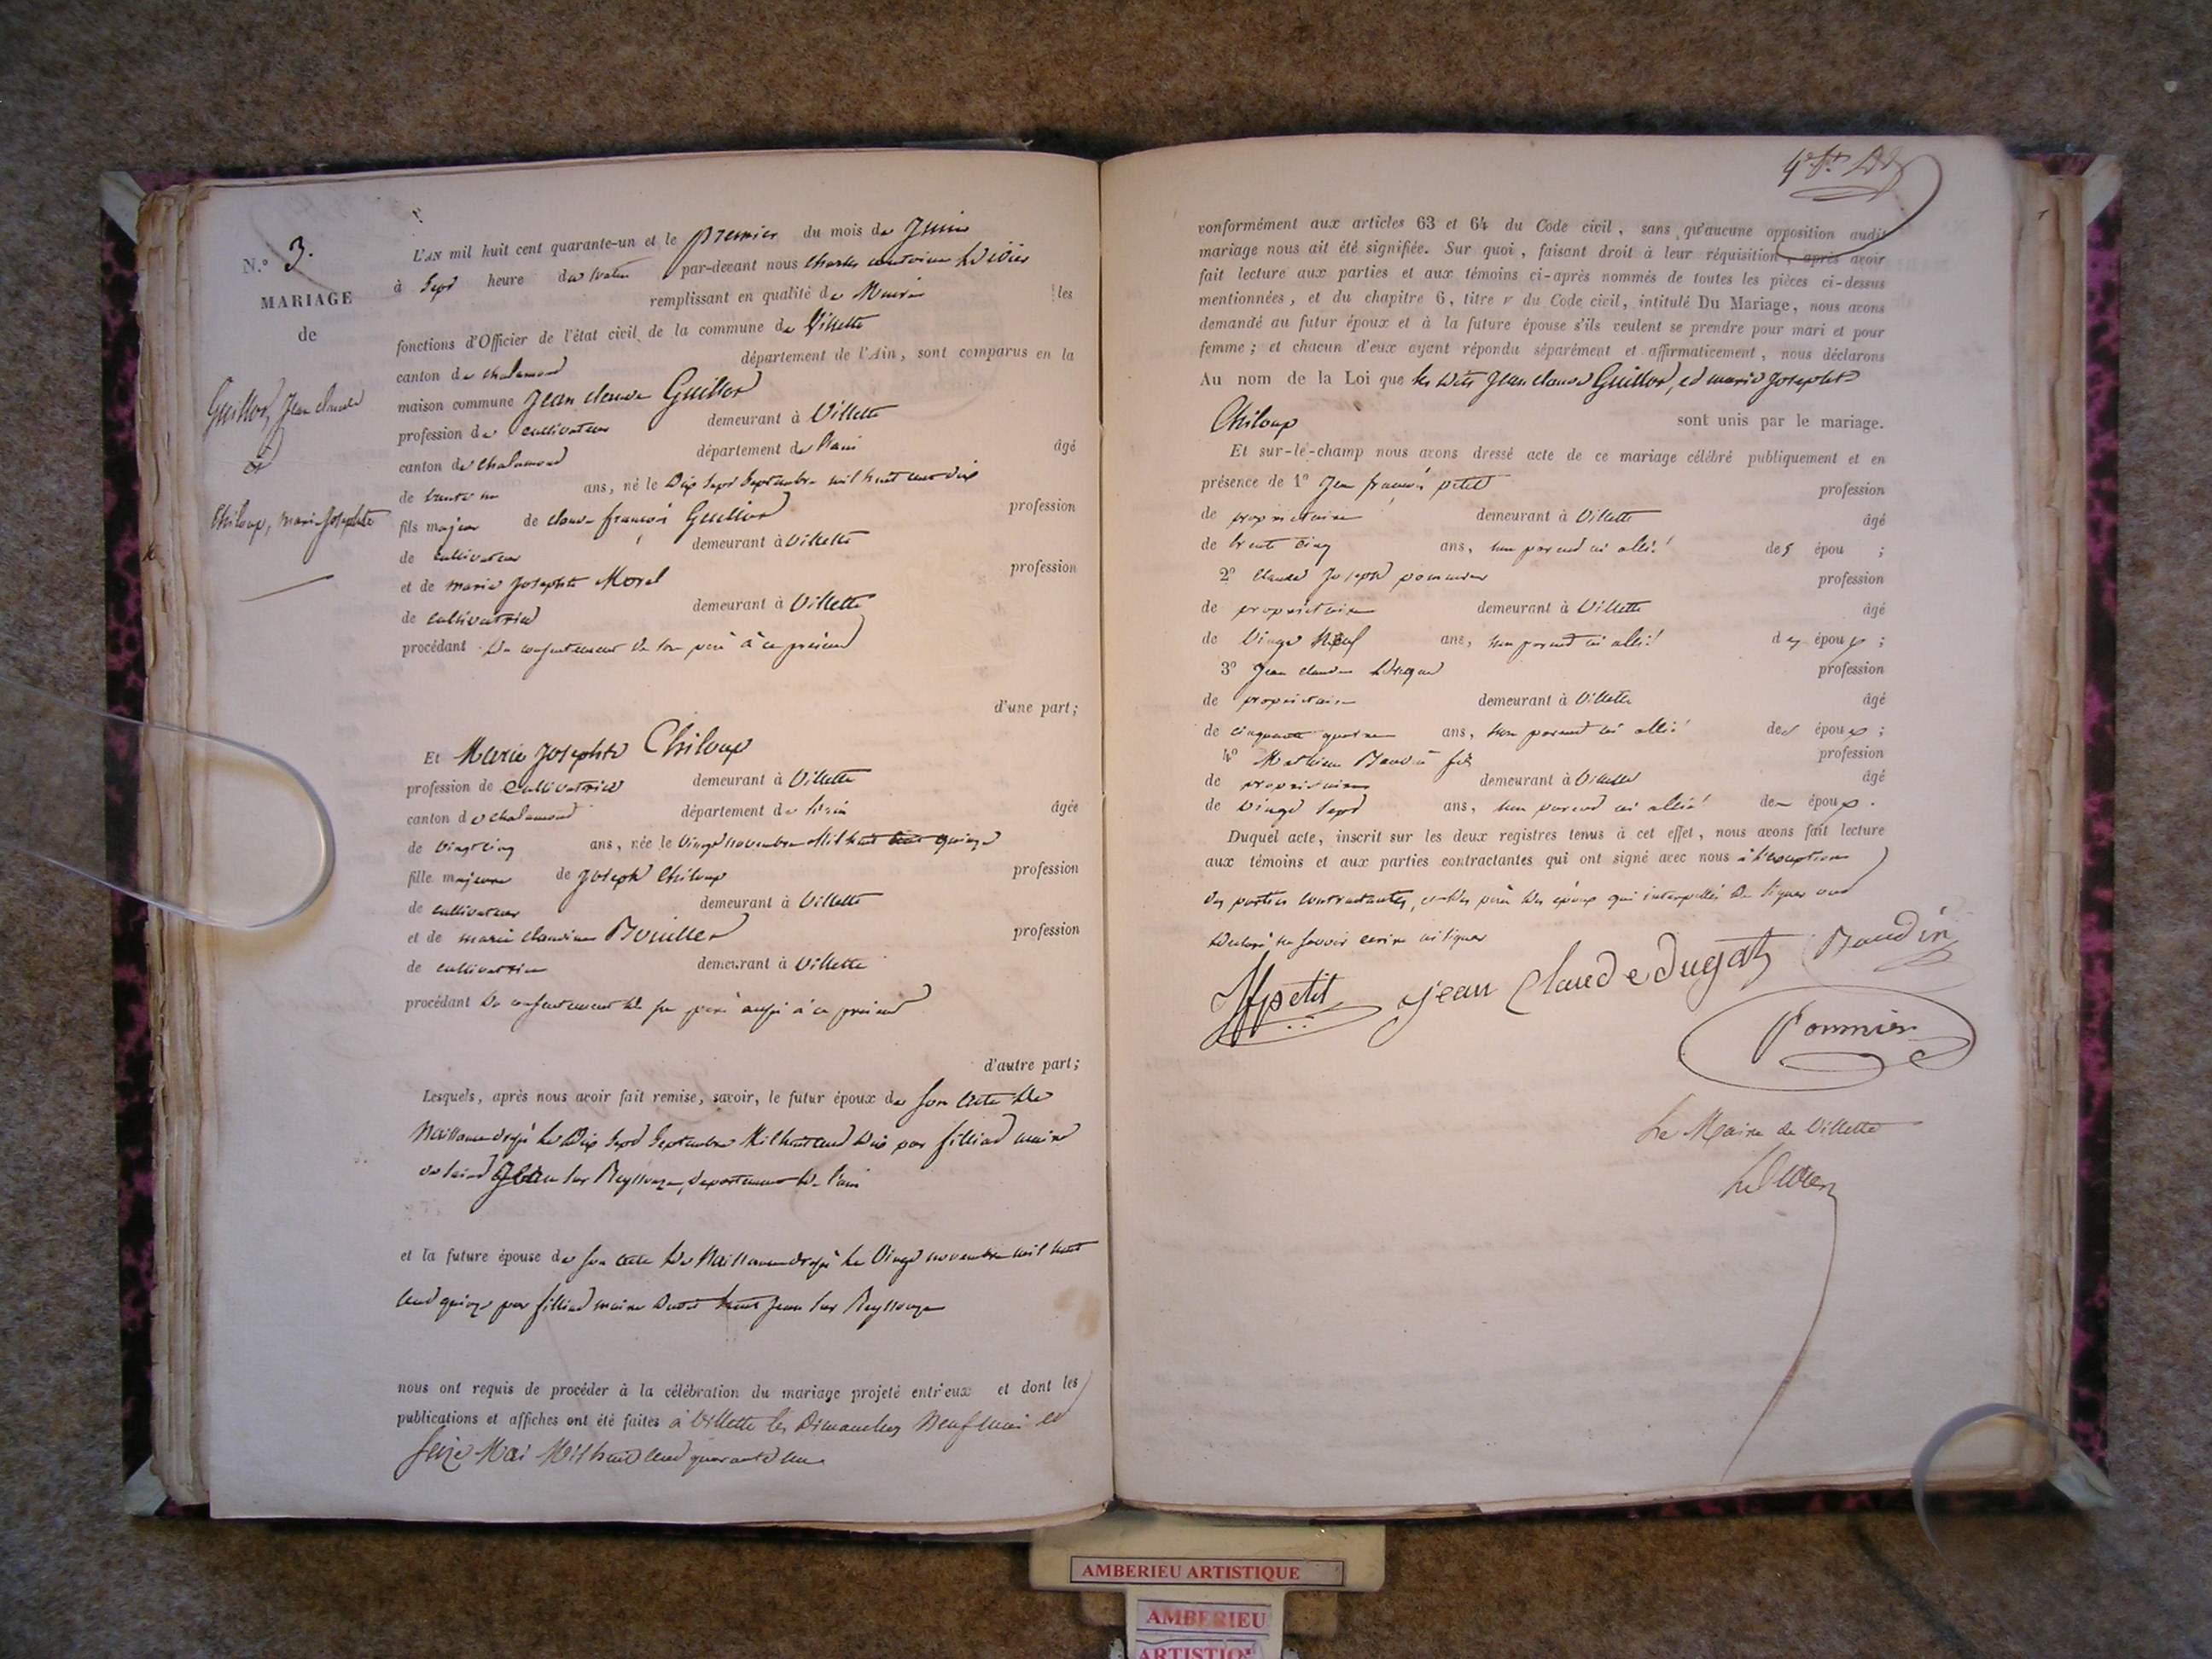 N.° 3.
MARIAGE
de
Guillod, Jean Claude
et
Chiloup, marie Josephte
L'AN mil huit cent quarante-un et le premier du mois de Juin
à Sept heure du matin par-devant nous Charles
remplissant en qualité de Maire les
fonctions d'Officier de l'état civil de la commune de Villette
canton de chalamond département de l'Ain, sont comparus en la
maison commune Jean claude Guillod
profession de cultivateur demeurant à Villette
canton de Chalamond département de l'ain âgé
de trente un ans, né le Dix Sept Septembre mil huit cent dix
fils majeur de claude françois Guillod profession
de cultivateur demeurant à Villette
et de marie Josephte Morel profession
de cultivatrice demeurant à Villette
procédant du consentement de son père à ce présent
d'une part;
Et Marie Josephte Chiloup
profession de Cultivatrice demeurant à Villette
canton de chalamond département de l'ain âgée
de vingt cinq ans, née le Vingt novembre Mil huit cent quinze
fille majeure de Joseph Chiloup profession
de cultivateur demeurant à Villette
et de marie claudine Bouiller profession
de cultivatrice demeurant à Villette
procédant du consentement de son père aussi à ce présent
d'autre part;
Lesquels, après nous avoir fait remise, savoir, le futur époux de son acte de
Naissance dressé le Dix Sept Septembre Mil huit cent Dix par filliod maire
de Saint Jean sur Reyssouze, département de l'ain
et la future épouse de son acte de Naissance dressé le Vingt novembre mil huit
cent quinze par filliod maire dudit Saint Jean sur Reyssouze
nous ont requis de procéder à la célébration du mariage projeté entr'eux et dont les
publications et affiches ont été faites à Villette les Dimanches Neuf mai et
Seize Mai Mil huit cent quarante un
conformément aux articles 63 et 64 du Code civil, sans qu'aucune opposition audit
mariage nous ait été signifiée. Sur quoi, faisant droit à leur réquisition, après avoir
fait lecture aux parties et aux témoins ci-après nommés de toutes les pièces ci-dessus
mentionnées, et du chapitre 6, titre v du Code civil, intitulé Du Mariage, nous avons
demandé au futur époux et à la future épouse s'ils veulent se prendre pour mari et pour
femme; et chacun d'eux ayant répondu séparément et affirmativement, nous déclarons
Au nom de la Loi que les dits Jean claude Guillod, et marie Josephte
Chiloup sont unis par le mariage.
Et sur-le-champ nous avons dressé acte de ce mariage célébré publiquement et en
présence de 1° Jean françois petit profession
de propriétaire demeurant à Villette âgé
de trente cinq ans, non parent ni allié des épou ;
2° Claude Joseph pommier profession
de propriétaire demeurant à Villette âgé
de Vingt Neuf ans, non parent ni allié des époux ;
3° Jean claude profession
de propriétaire demeurant à Villette âgé
de cinquante quatre ans, non parent ni allié des époux ;
4° Mathieu Baudin fils profession
de propriétaire demeurant à Villette âgé
de vingt Sept ans, non parent ni allié des époux.
Duquel acte, inscrit sur les deux registres tenus à cet effet, nous avons fait lecture
aux témoins et aux parties contractantes qui ont signé avec nous à l'exception
des parties contractantes, et des pères des époux qui interpellés de signer ont
déclaré ne savoir écrire ni signer
JF petit Jean Claude dugat Baudin
Pommier
Le Maire de Villette
AMBERIEU ARTISTIQUE
AMBERIEU
ARTISTIQ